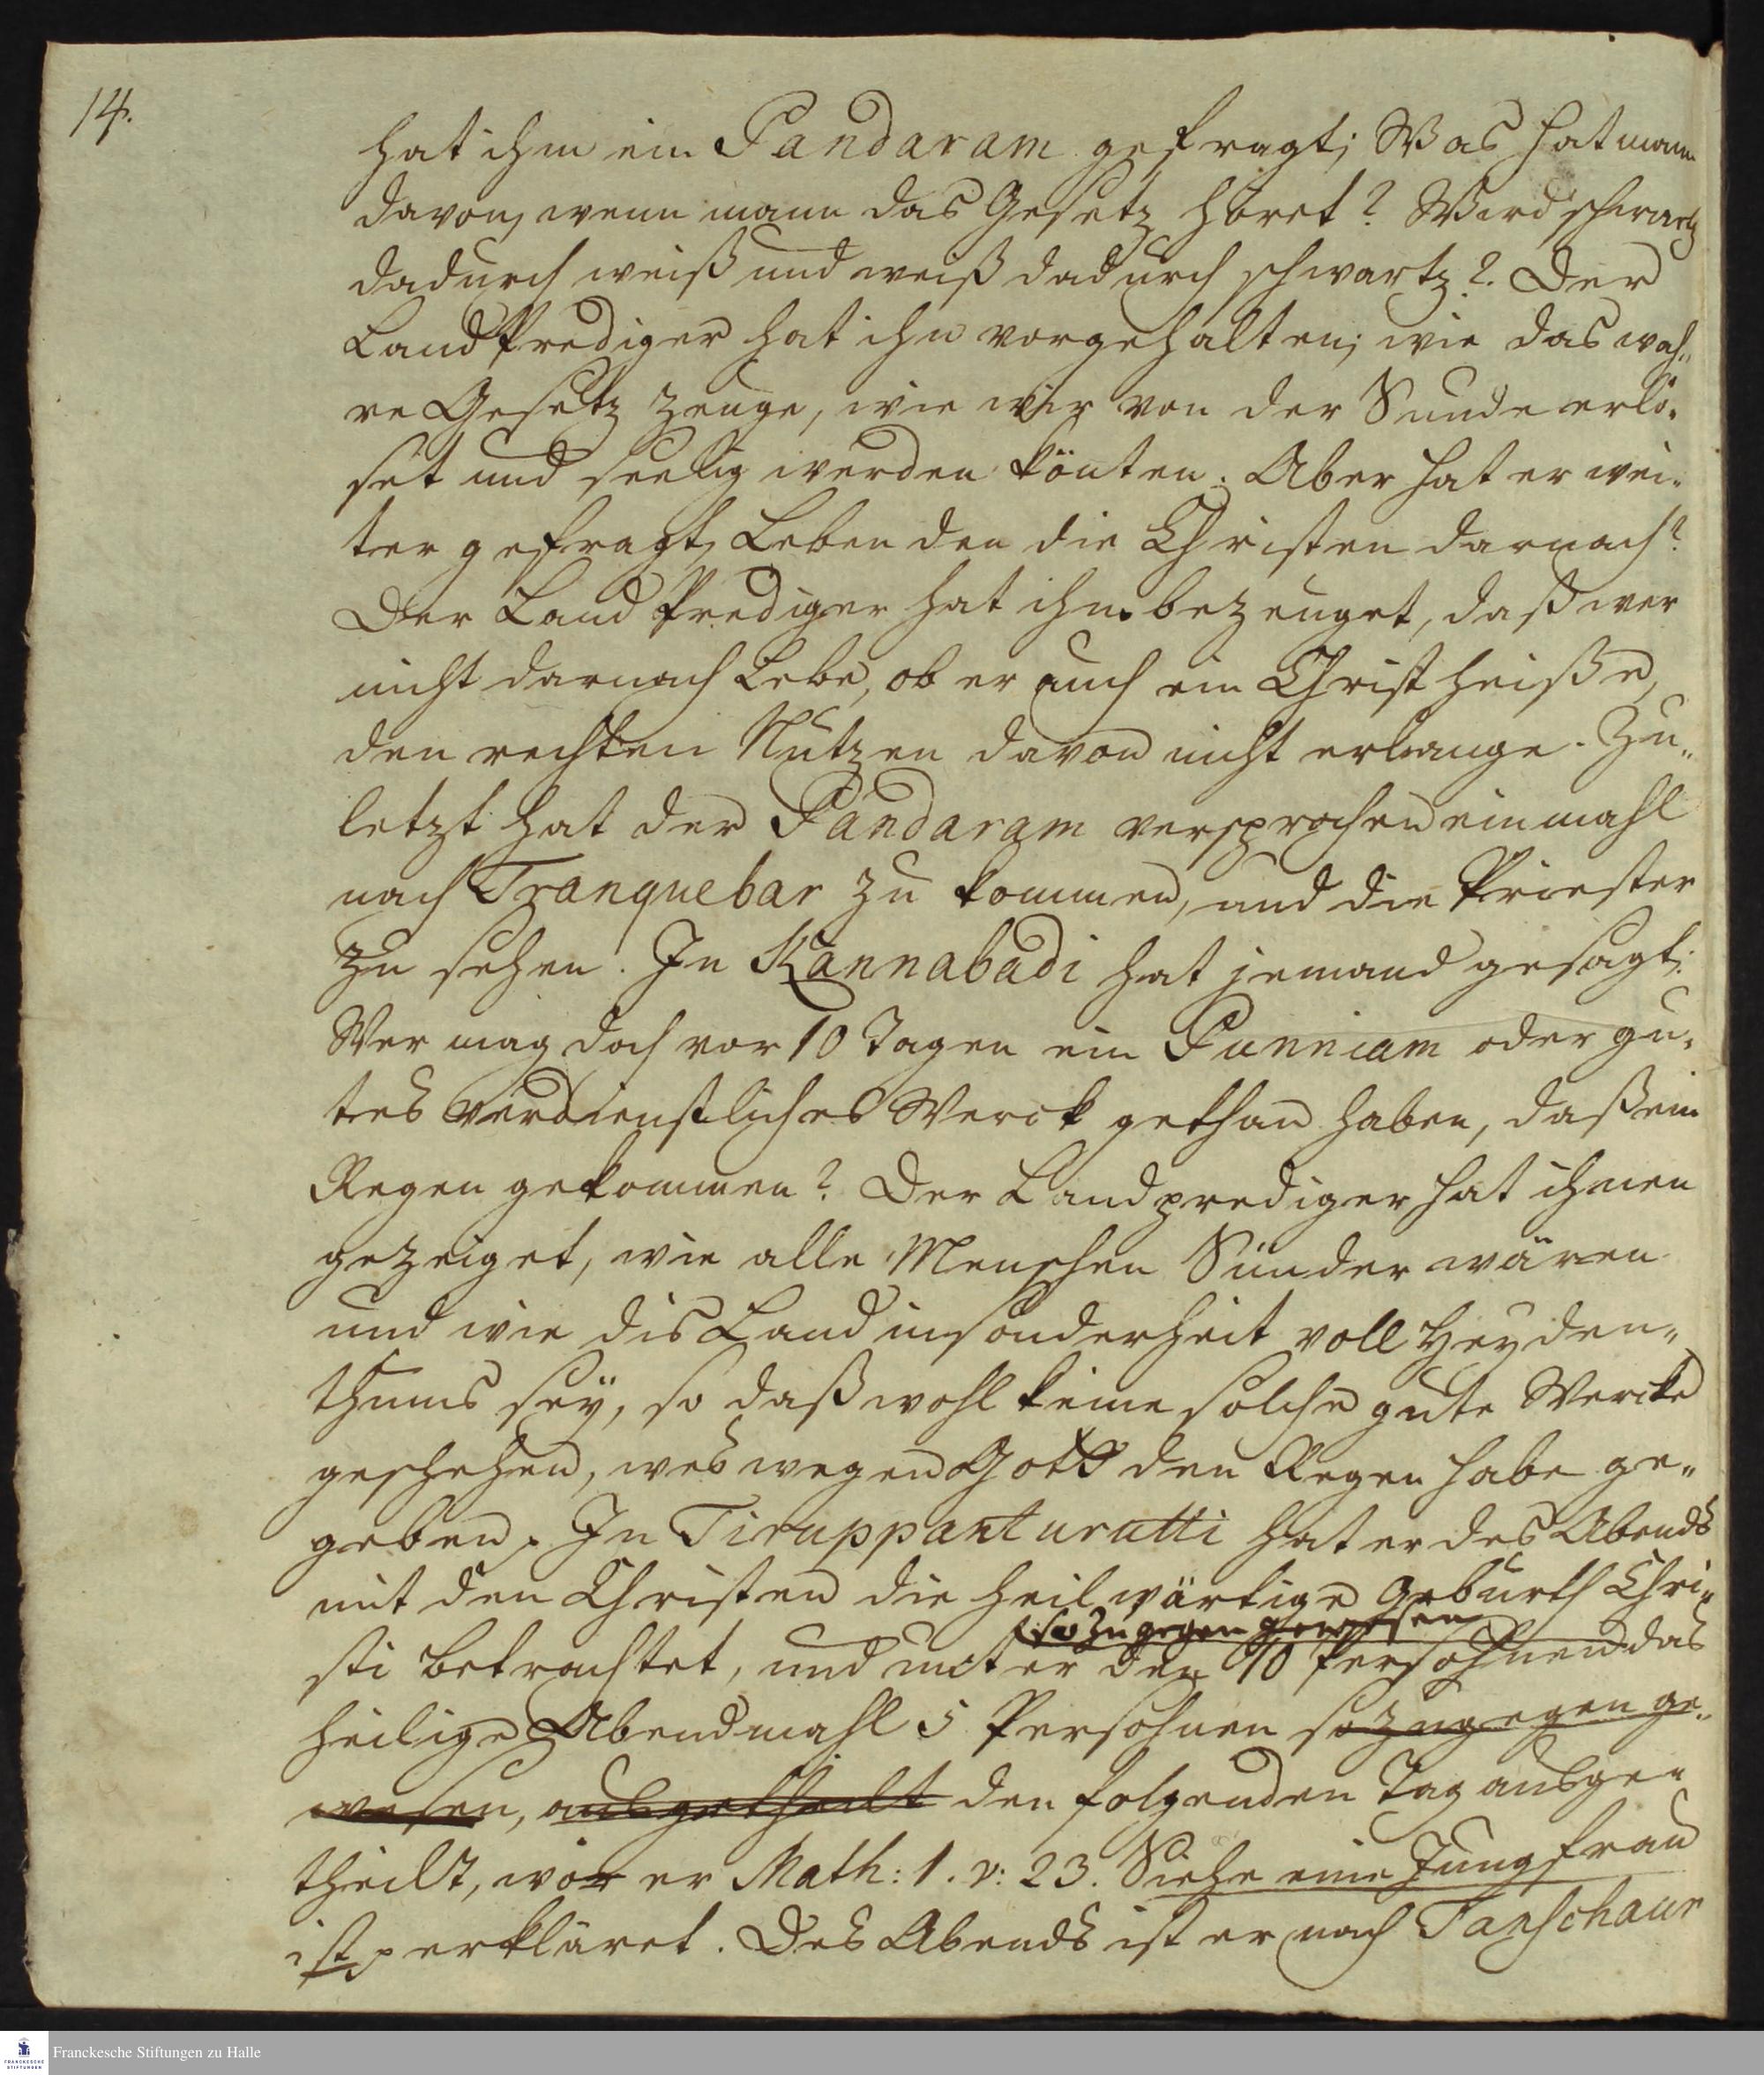 14.
hat ihm ein Pandaram gefragt; Was hat mann
davon, wenn mann das Gesetz höret? Wird schwartz
dadurch weiß und weiß dadurch schwartz?. Der
LandPrediger hat ihn vorgehalten; wie das wah„
re Gesetz zeuge, wie wir von der Sünde erlö„
set und seelig werden könten. Aber hat er wei„
ter gefragt, Leben den die Christen darnach?
Der Land Prediger hat ihn bezeuget, daß wer
nicht darnach Lebe, ob er auch ein Christ heiße,
den rechten Nutzen davon nicht erlange. Zu„
letzt hat der Pandaram versprochen einmahl
nach Tranquebar zu kommen, und die Priester
zu sehen. In Kannabadi hat jemand gesagt:
Wer mag doch vor 10 Tagen ein Punniam oder gu„
tes verdienstliches Werck gethan haben, daß ein
Regen gekommen? Der Landprediger hat ihnen
gezeiget, wie alle Menschen Sünder wären
und wie dis Land insonderheit voll Heyden„
thums seÿ, so daß wohl keine solche gute Wercke
geschehen, weswegen Gott den Regen habe ge„
geben. In Tiruppanturutti hat er des Abends
mit den Christen die heilwärtige Geburth Chri„
so zugegen gewesen
sti betrachtet, und unter den 10 Persohnen das
heilige Abendmahl 5 Persohnen so zugegen ge„
wesen, ausgetheilt den folgenden Tag ausge„
theilt, wor er Math: 1. v: 23. Siehe eine Jungfrau
ist p erkläret. Des Abends ist er nach Tanschaur
Franckesche Stiftungen zu Halle
FRANCKESCHE
STIFTUNGEN